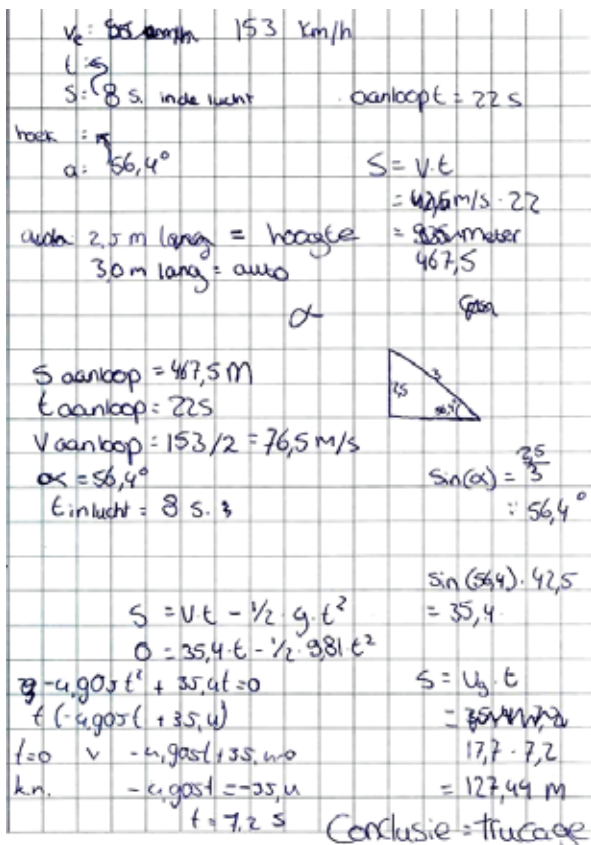 ve: 153 km/h
t:
s: 8 s. in de lucht
aanloop t = 22 s
hoek :
a: 56,4°
S = v.t
= 42,5 m/s . 22
= meter
467,5
auto 2,5 m lang = hoogte
3,0 m lang = auto
α
S aanloop = 467,5 M
t aanloop = 22s
V aanloop = 153/2 = 76,5 m/s
α = 56,4°
t in lucht = 8 s.
2,5
3
56,4°
sin(α) = 2,5/3
= 56,4°
sin (56,4) . 42,5
= 35,4
S = v.t - 1/2 . g . t²
0 = 35,4.t - 1/2 . 9,81 . t²
-4,905t² + 35,4t = 0
t (-4,905t + 35,4)
t=0 v -4,905t + 35,4=0
k.n. -4,905t = -35,4
t = 7,2 s
S = vg . t
17,7 . 7,2
= 127,44 m
Conclusie = trucage